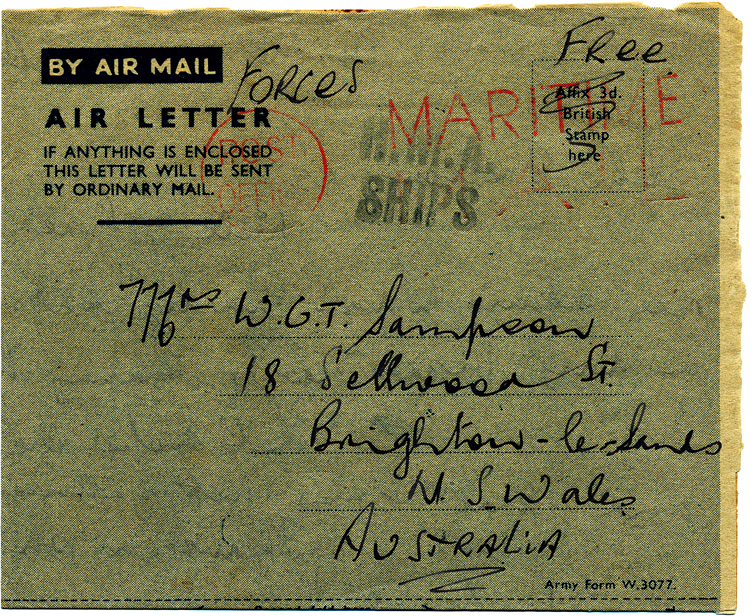 Free
BY AIR MAIL
Forces
AIR LETTER
IF ANYTHING IS ENCLOSED
THIS LETTER WILL BE SENT
BY ORDINARY MAIL.
MARITIME
POST
Affix 3d.
British
Stamp
here
H.M.A.
SHIPS
Mrs W.G.T. Sampson
18 Sellwood St.
Brighton-le-Sands
N.S. Wales
AUSTRALIA
Army Form W.3077.